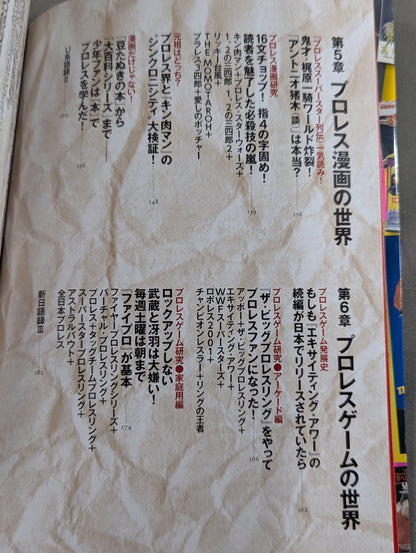 第5章 プロレス漫画の世界
『プロレススーパースター列伝』一気読み！
鬼才 梶原一騎ワールド炸裂！
「アントニオ猪木（談）」は本当？
136
プロレス漫画研究
16文チョップ！ 指4の字固め！
読者を魅了した必殺技の嵐！
キン肉マン＋プロレス・スターウォーズ＋
1、2の三四郎 1、2の三四郎2＋
THE MOMOTAROH＋
リッキー台風＋
プラレス3四郎＋愛しのボッチャー
139
元祖はどっち？
プロレス界と『キン肉マン』の
シンクロニシティ大検証！
148
漫画だけじゃない！
「豆たぬきの本」から
「大百科シリーズ」まで
少年ファンは"本"で
プロレスを学んだ！
156
U系語録Ⅱ
160
第6章 プロレスゲームの世界
プロレスゲーム発展史
もしも『エキサイティング・アワー』の
続編が日本でリリースされていたら
162
プロレスゲーム研究●アーケード編
『ザ・ビッグプロレスリング』をやって
プロレスファンになった！
アッポー＋ザ・ビッグプロレスリング＋
エキサイティング・アワー＋
WWFスーパースターズ＋
ロボレス2001＋
チャンピオンレスラー＋リングの王者
166
プロレスゲーム研究●家庭用編
ロックアップしない
武蔵と冴羽は大嫌い！
毎週土曜は朝まで
『ファイプロ』が基本
ファイヤープロレスリングシリーズ＋
バーチャル・プロレスリング＋
プロレス＋タッグチームプロレスリング＋
スーパースタープロレスリング＋
アストロノルスト＋
全日本プロレス
174
新日語録Ⅲ
182